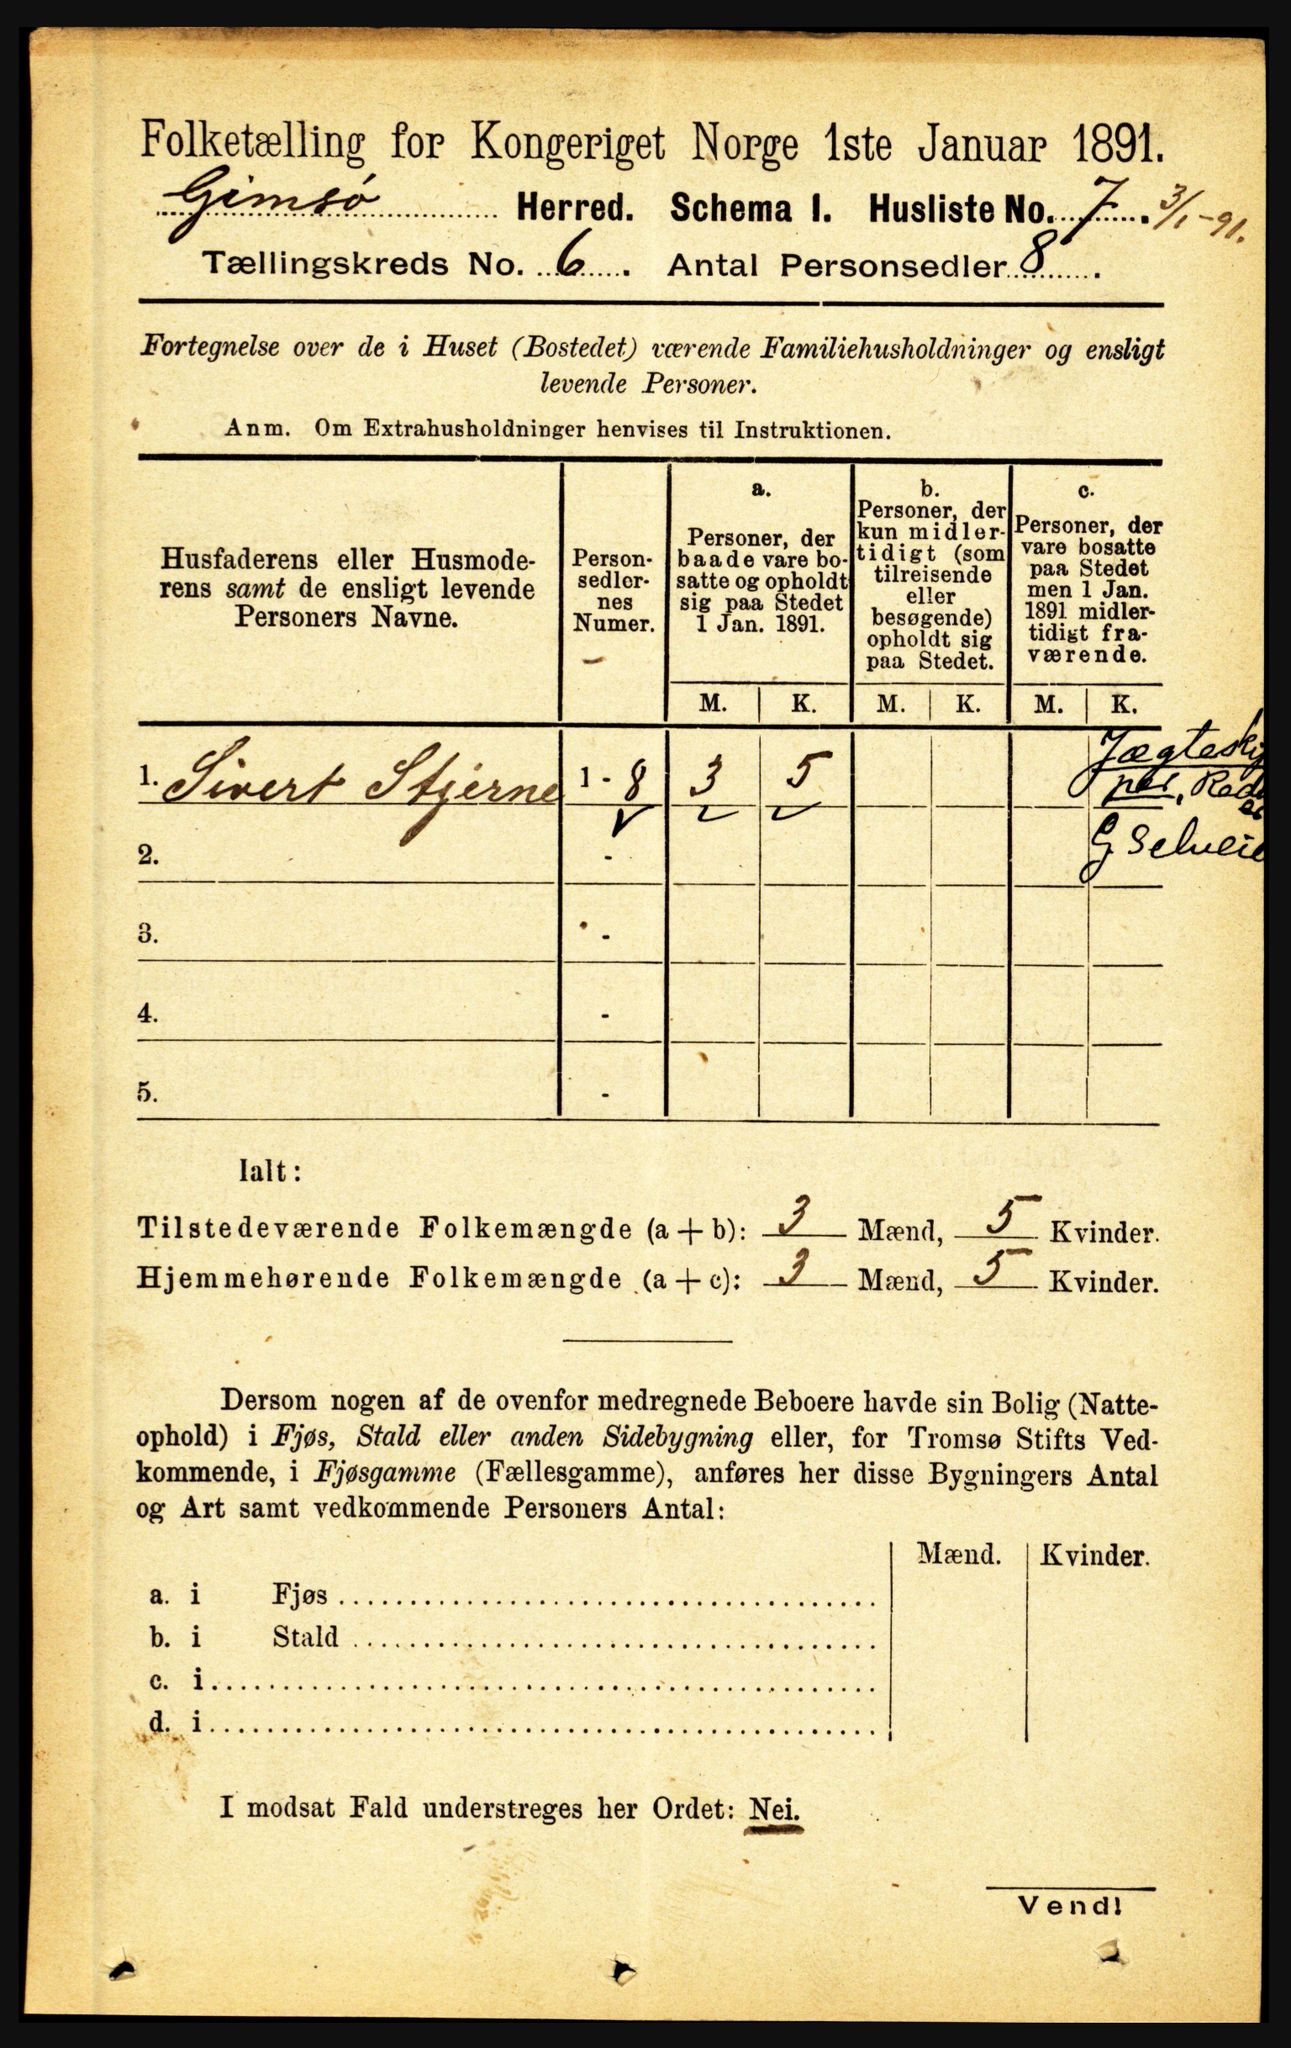 Folketælling for Kongeriget Norge 1ste Januar 1891.
Gimsø Herred. Schema I. Husliste No. 7. 3/1-91.
Tællingskreds No. 6. Antal Personsedler 8.
Fortegnelse over de i Huset (Bostedet) værende Familiehusholdninger og ensligt
levende Personer.
Anm. Om Extrahusholdninger henvises til Instruktionen.
Husfaderens eller Husmode-
rens samt de ensligt levende
Personers Navne.
Person-
sedler-
nes
Numer.
a.
Personer, der
baade vare bo-
satte og opholdt
sig paa Stedet
1 Jan. 1891.
b.
Personer, der
kun midler-
tidigt (som
tilreisende
eller
besøgende)
opholdt sig
paa Stedet.
c.
Personer, der
vare bosatte
paa Stedet
men 1 Jan.
1891 midler-
tidigt fra-
værende.
M. K. M. K. M. K.
1. Sivert Stjerne 1 - 8 3 5
Jægtesky
per,
G Selveie
2. -
3. -
4. -
5. -
Ialt:
Tilstedeværende Folkemængde (a + b): 3 Mænd, 5 Kvinder.
Hjemmehørende Folkemængde (a + c): 3 Mænd, 5 Kvinder.
Dersom nogen af de ovenfor medregnede Beboere havde sin Bolig (Natte-
ophold) i Fjøs, Stald eller anden Sidebygning eller, for Tromsø Stifts Ved-
kommende, i Fjøsgamme (Fællesgamme), anføres her disse Bygningers Antal
og Art samt vedkommende Personers Antal:
Mænd. Kvinder.
a. i Fjøs
b. i Stald
c. i
d. i
I modsat Fald understreges her Ordet: Nei.
Vend!